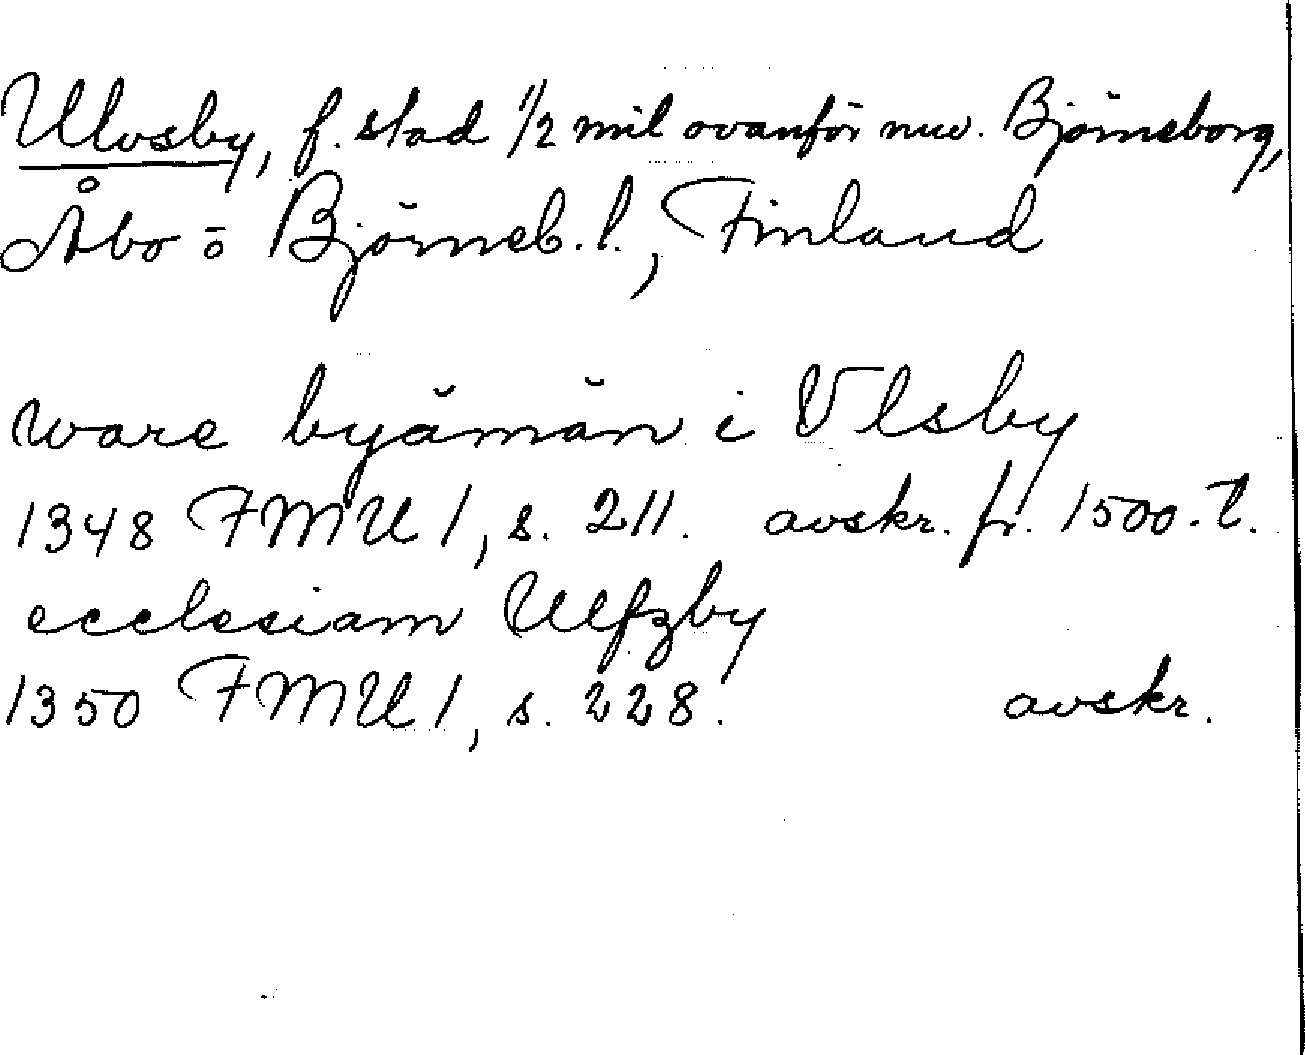 Ulvsby, f. stad 1/2 mil ovanför nuv. Björneborg,
Åbo o Björneb. l., Finland
ware byämän i Vlsby
1348 FMU 1, s. 211. avskr. fr. 1500-t.
ecclesiam Ulfzby
1350 FMU 1, s. 228. avskr.